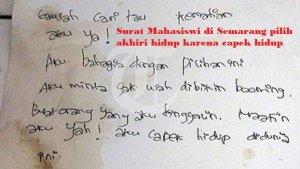 Gausah cari tau kematian
aku ya!
Surat Mahasiswi di Semarang pilih
akhiri hidup karena capek hidup
Aku bahagia dengan pilihan ini
Aku minta gak usah dibikin booming.
Buat orang yang aku tinggalin. Maafin
aku yah! aku capek hidup didunia
ini.